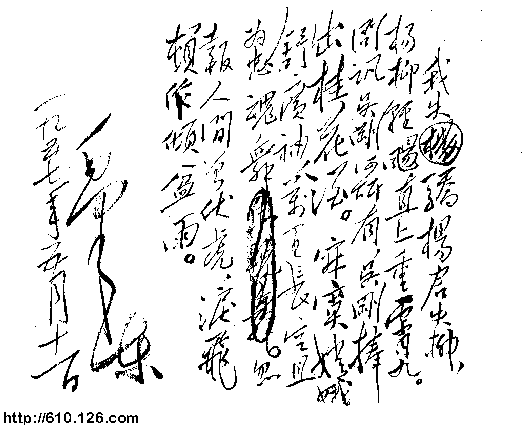 我失驕楊君失柳、
楊柳輕颺直上重霄九。
問訊吳剛何所有 吳剛捧
出桂花酒。寂寞嫦娥
舒廣袖 萬里長空且
為忠魂舞。忽
報人間曾伏虎,淚飛
頓作傾盆雨。
毛澤東
一九五七年五月十一日
http://610.126.com